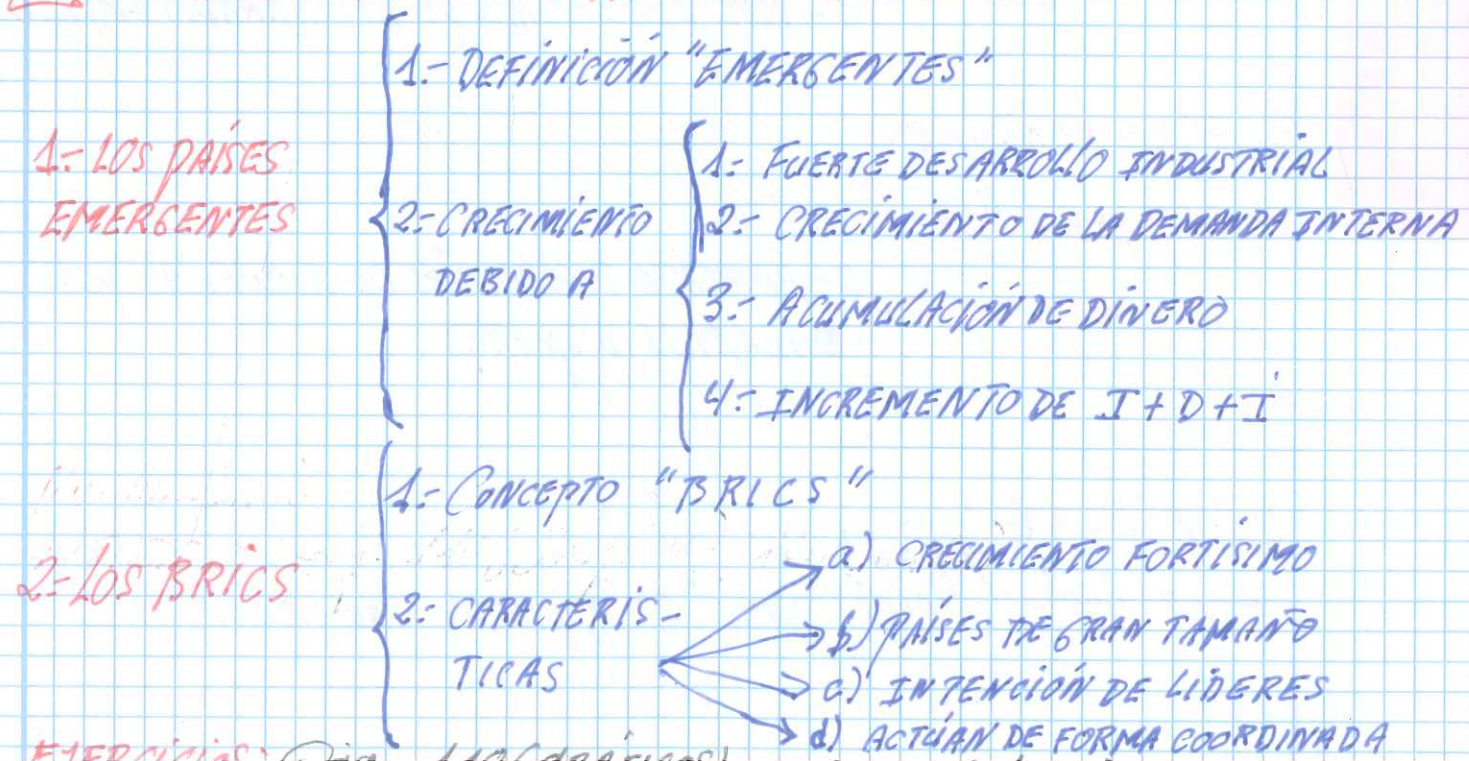 1.- DEFINICIÓN "EMERGENTES"
1.- LOS PAÍSES
EMERGENTES
2.- CRECIMIENTO
DEBIDO A
1.- FUERTE DESARROLLO INDUSTRIAL
2.- CRECIMIENTO DE LA DEMANDA INTERNA
3.- ACUMULACIÓN DE DINERO
4.- INCREMENTO DE I+D+I
2.- LOS BRICS
1.- CONCEPTO "BRICS"
2.- CARACTERÍS-
TICAS
a) CRECIMIENTO FORTÍSIMO
b) PAÍSES DE GRAN TAMAÑO
c) INTENCIÓN DE LÍDERES
d) ACTÚAN DE FORMA COORDINADA
EJERCICIOS: